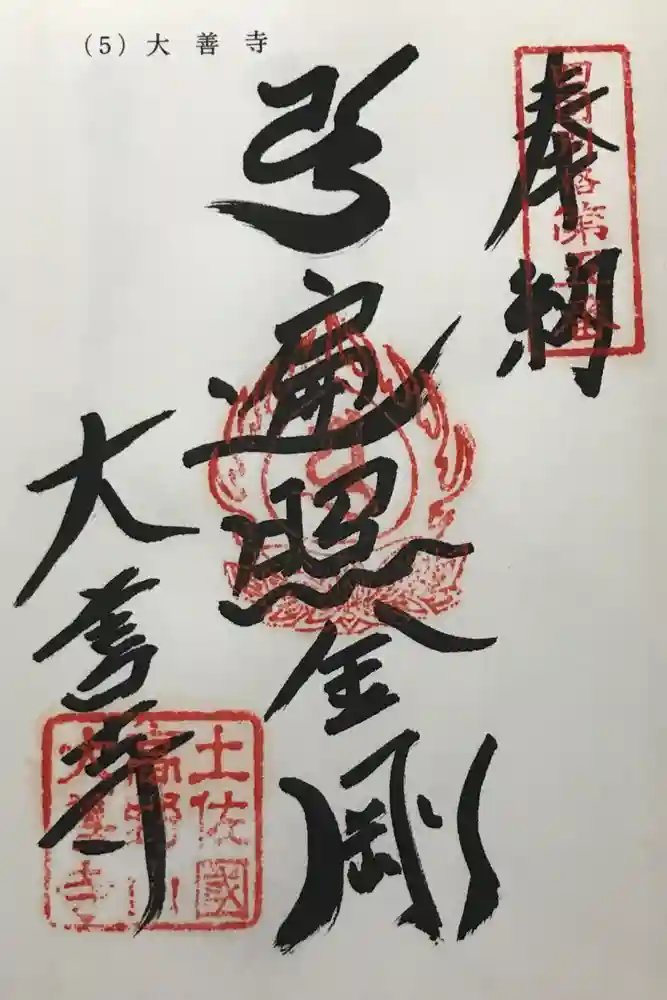 (5) 大善寺
奉納
遍照金剛
大善寺
土佐國
高野山
大善寺